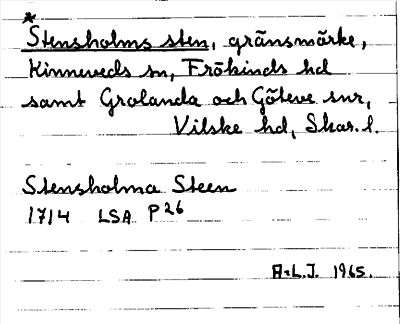 *
Stensholms sten, gränsmärke,
Kinneveds sn, Frökinds hd
samt Grolanda och Göteve snr,
Vilske hd, Skar. l.
Stensholma Steen
1714 LSA P26
A-L.J. 1965.